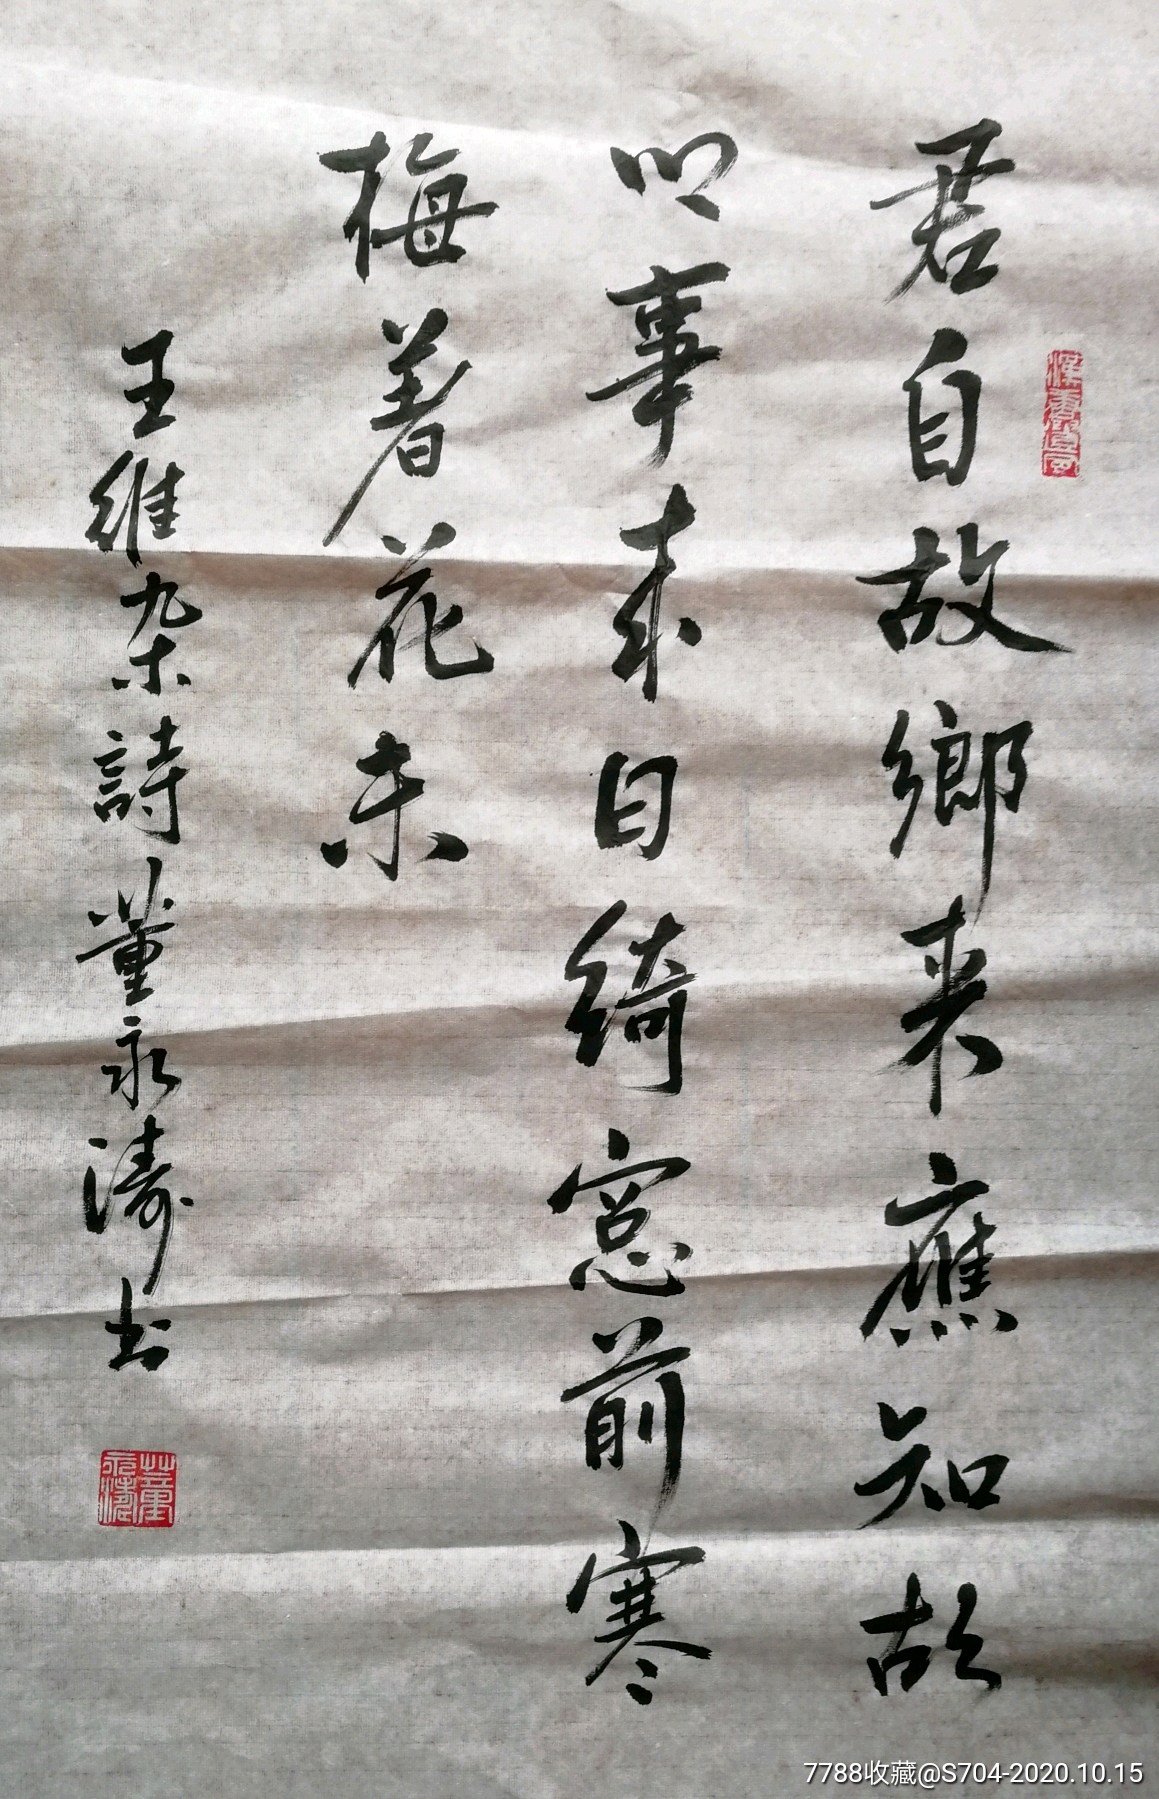 君自故鄉来應知故
鄉事来日綺窓前寒
梅着花未
王維杂詩董永濤书
董永濤
7788收藏@S704-2020.10.15